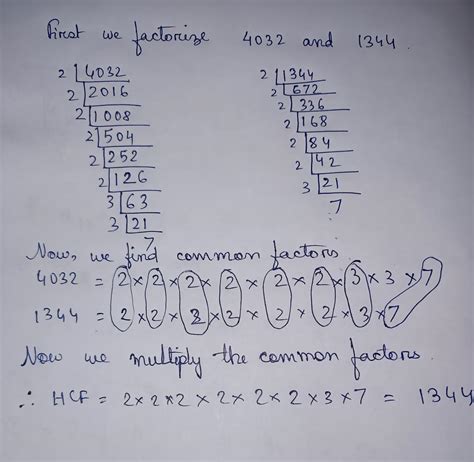 First we factorize 4032 and 1344.
2 | 4032
2 | 2016
2 | 1008
2 | 504
2 | 252
2 | 126
3 | 63
3 | 21
7
2 | 1344
2 | 672
2 | 336
2 | 168
2 | 84
2 | 42
3 | 21
7
Now, we find common factors.
4032 = 2 × 2 × 2 × 2 × 2 × 2 × 3 × 3 × 7
1344 = 2 × 2 × 2 × 2 × 2 × 2 × 3 × 7
Now we multiply the common factors.
∴ HCF = 2 × 2 × 2 × 2 × 2 × 2 × 3 × 7 = 1344